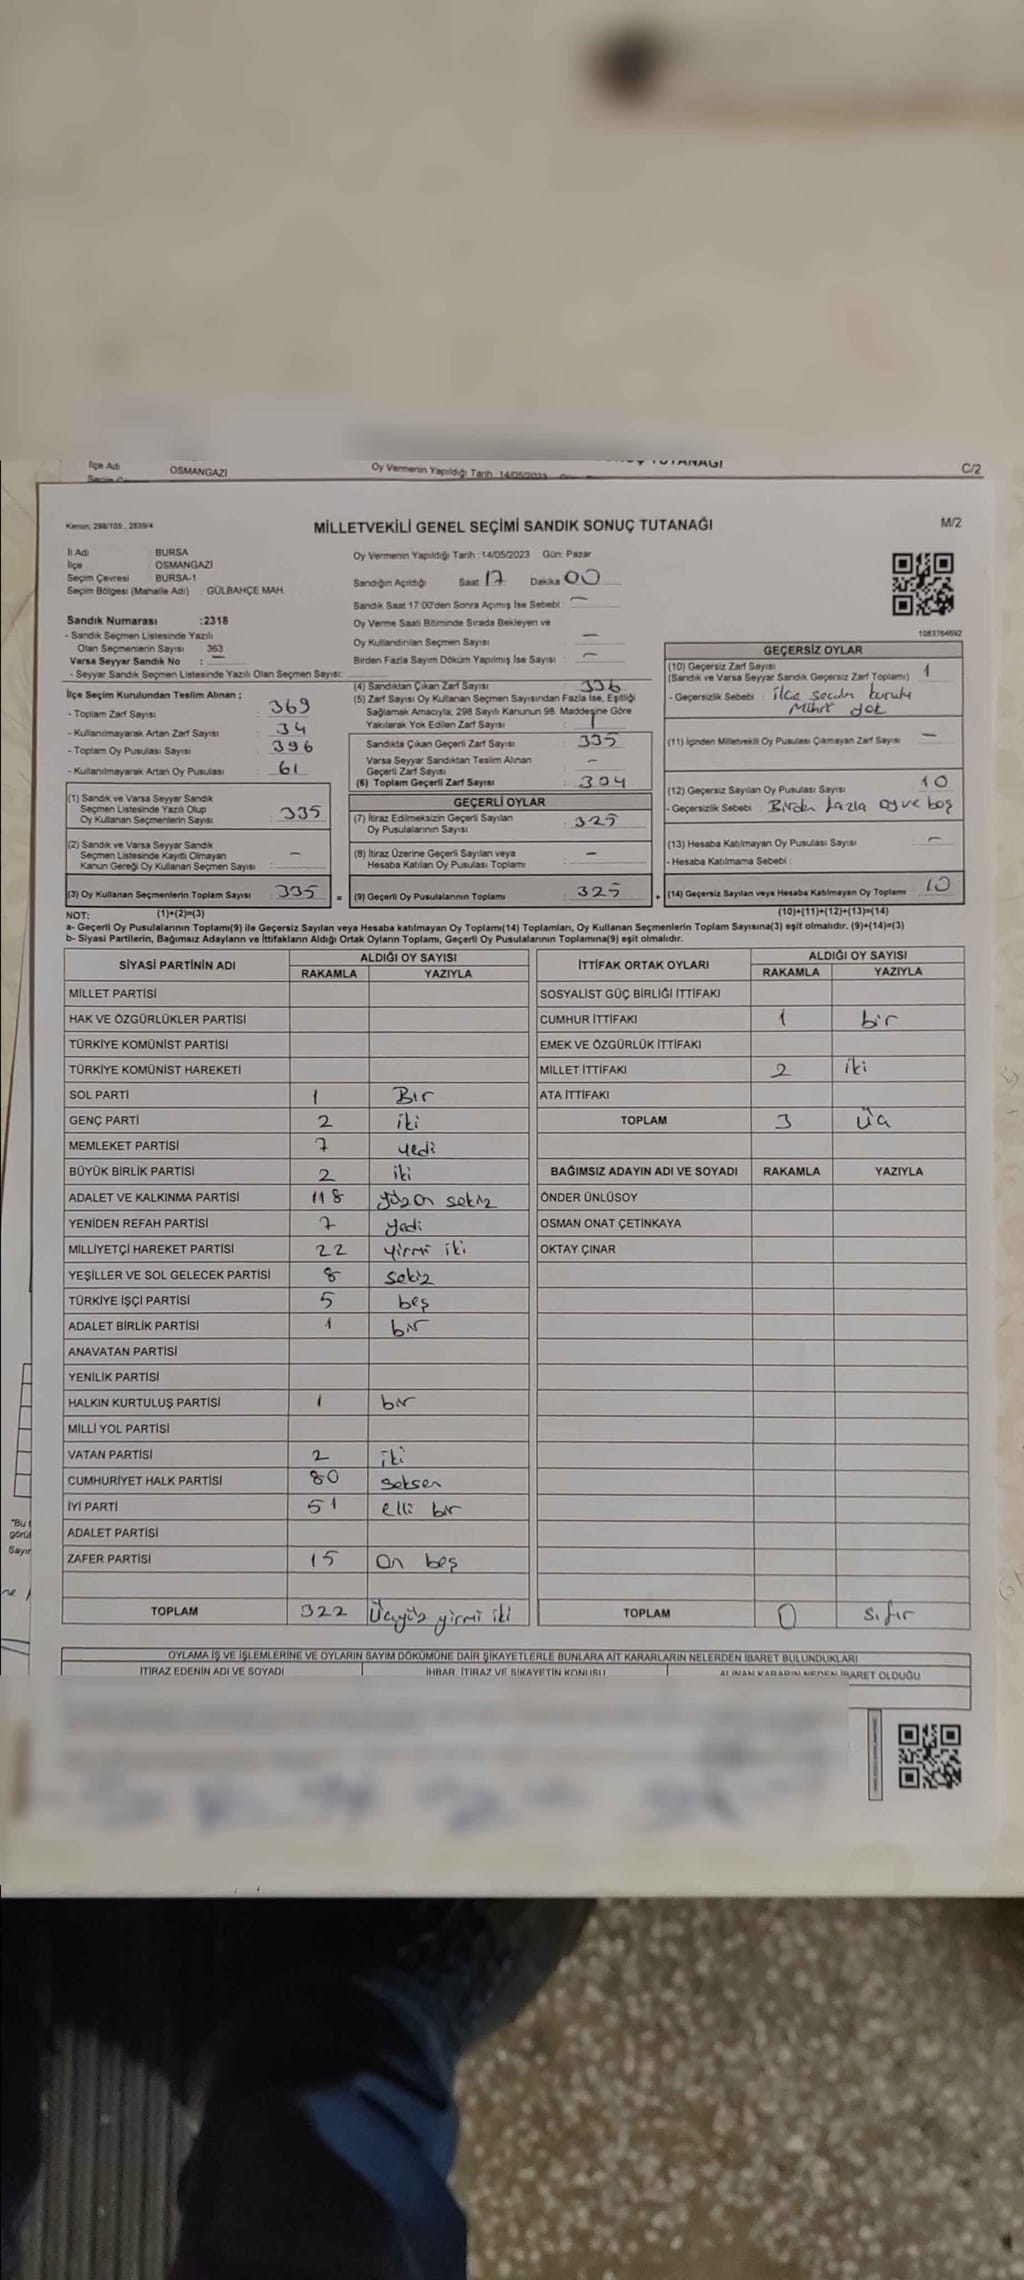 İlçe Adı OSMANGAZİ Oy Vermenin Yapıldığı Tarih :14/05/2023 TUTANAĞI C/2
Kanun; 298/105 , 2839/4 MİLLETVEKİLİ GENEL SEÇİMİ SANDIK SONUÇ TUTANAĞI M/2
İl Adı BURSA
İlçe OSMANGAZİ
Seçim Çevresi BURSA-1
Seçim Bölgesi (Mahalle Adı) : GÜLBAHÇE MAH.
Sandık Numarası :2318
- Sandık Seçmen Listesinde Yazılı
Olan Seçmenlerin Sayısı 363
Varsa Seyyar Sandık No : —
- Seyyar Sandık Seçmen Listesinde Yazılı Olan Seçmen Sayısı:
Oy Vermenin Yapıldığı Tarih :14/05/2023 Gün: Pazar
Sandığın Açıldığı Saat 17 Dakika 00
Sandık Saat 17:00'den Sonra Açımış İse Sebebi : —
Oy Verme Saati Bitiminde Sırada Bekleyen ve
Oy Kullandırılan Seçmen Sayısı —
Birden Fazla Sayım Döküm Yapılmış İse Sayısı : —
1083764692
İlçe Seçim Kurulundan Teslim Alınan ;
- Toplam Zarf Sayısı : 369
- Kullanılmayarak Artan Zarf Sayısı : 34
- Toplam Oy Pusulası Sayısı : 396
- Kullanılmayarak Artan Oy Pusulası : 61
(1) Sandık ve Varsa Seyyar Sandık
Seçmen Listesinde Yazılı Olup
Oy Kullanan Seçmenlerin Sayısı : 335
(2) Sandık ve Varsa Seyyar Sandık
Seçmen Listesinde Kayıtlı Olmayan
Kanun Gereği Oy Kullanan Seçmen Sayısı : —
(3) Oy Kullanan Seçmenlerin Toplam Sayısı : 335 =
(4) Sandıktan Çıkan Zarf Sayısı : 336
(5) Zarf Sayısı Oy Kullanan Seçmen Sayısından Fazla İse, Eşitliği
Sağlamak Amacıyla, 298 Sayılı Kanunun 98. Maddesine Göre
Yakılarak Yok Edilen Zarf Sayısı : 1
Sandıkta Çıkan Geçerli Zarf Sayısı : 335
Varsa Seyyar Sandıktan Teslim Alınan
Geçerli Zarf Sayısı : —
(6) Toplam Geçerli Zarf Sayısı :
GEÇERLİ OYLAR
(7) İtiraz Edilmeksizin Geçerli Sayılan
Oy Pusulalarının Sayısı : 325
(8) İtiraz Üzerine Geçerli Sayılan veya
Hesaba Katılan Oy Pusulası Toplamı : —
(9) Geçerli Oy Pusulalarının Toplamı : 325 +
GEÇERSİZ OYLAR
(10) Geçersiz Zarf Sayısı
(Sandık ve Varsa Seyyar Sandık Geçersiz Zarf Toplamı) : 1
- Geçersizlik Sebebi : ilçe seçim kurulu
Mührü yok
(11) İçinden Milletvekili Oy Pusulası Çıkmayan Zarf Sayısı —
(12) Geçersiz Sayılan Oy Pusulası Sayısı 10
- Geçersizlik Sebebi : Birden fazla oy ve boş
(13) Hesaba Katılmayan Oy Pusulası Sayısı : —
- Hesaba Katılmama Sebebi :
(14) Geçersiz Sayılan veya Hesaba Katılmayan Oy Toplamı : 10
NOT: (1)+(2)=(3) (10)+(11)+(12)+(13)=(14)
a- Geçerli Oy Pusulalarının Toplamı(9) ile Geçersiz Sayılan veya Hesaba katılmayan Oy Toplamı(14) Toplamları, Oy Kullanan Seçmenlerin Toplam Sayısına(3) eşit olmalıdır. (9)+(14)=(3)
b- Siyasi Partilerin, Bağımsız Adayların ve İttifakların Aldığı Ortak Oyların Toplamı, Geçerli Oy Pusulalarının Toplamına(9) eşit olmalıdır.
SİYASİ PARTİNİN ADI ALDIĞI OY SAYISI
RAKAMLA YAZIYLA
MİLLET PARTİSİ
HAK VE ÖZGÜRLÜKLER PARTİSİ
TÜRKİYE KOMÜNİST PARTİSİ
TÜRKİYE KOMÜNİST HAREKETİ
SOL PARTİ 1 Bir
GENÇ PARTİ 2 iki
MEMLEKET PARTİSİ 7 yedi
BÜYÜK BİRLİK PARTİSİ 2 iki
ADALET VE KALKINMA PARTİSİ 118 yüzon sekiz
YENİDEN REFAH PARTİSİ 7 yedi
MİLLİYETÇİ HAREKET PARTİSİ 22 yirmi iki
YEŞİLLER VE SOL GELECEK PARTİSİ 8 sekiz
TÜRKİYE İŞÇİ PARTİSİ 5 beş
ADALET BİRLİK PARTİSİ 1 bir
ANAVATAN PARTİSİ
YENİLİK PARTİSİ
HALKIN KURTULUŞ PARTİSİ 1 bir
MİLLİ YOL PARTİSİ
VATAN PARTİSİ 2 iki
CUMHURİYET HALK PARTİSİ 80 seksen
İYİ PARTİ 51 elli bir
ADALET PARTİSİ
ZAFER PARTİSİ 15 on beş
TOPLAM 322 Üçyüz yirmi iki
İTTİFAK ORTAK OYLARI ALDIĞI OY SAYISI
RAKAMLA YAZIYLA
SOSYALİST GÜÇ BİRLİĞİ İTTİFAKI
CUMHUR İTTİFAKI 1 bir
EMEK VE ÖZGÜRLÜK İTTİFAKI
MİLLET İTTİFAKI 2 iki
ATA İTTİFAKI
TOPLAM 3 üç
BAĞIMSIZ ADAYIN ADI VE SOYADI RAKAMLA YAZIYLA
ÖNDER ÜNLÜSOY
OSMAN ONAT ÇETİNKAYA
OKTAY ÇINAR
TOPLAM 0 sıfır
OYLAMA İŞ VE İŞLEMLERİNE VE OYLARIN SAYIM DÖKÜMÜNE DAİR ŞİKAYETLERLE BUNLARA AİT KARARLARIN NELERDEN İBARET BULUNDUKLARI
İTİRAZ EDENİN ADI VE SOYADI İHBAR, İTİRAZ VE ŞİKAYETİN KONUSU ALINAN KARARIN NEDEN İBARET OLDUĞU